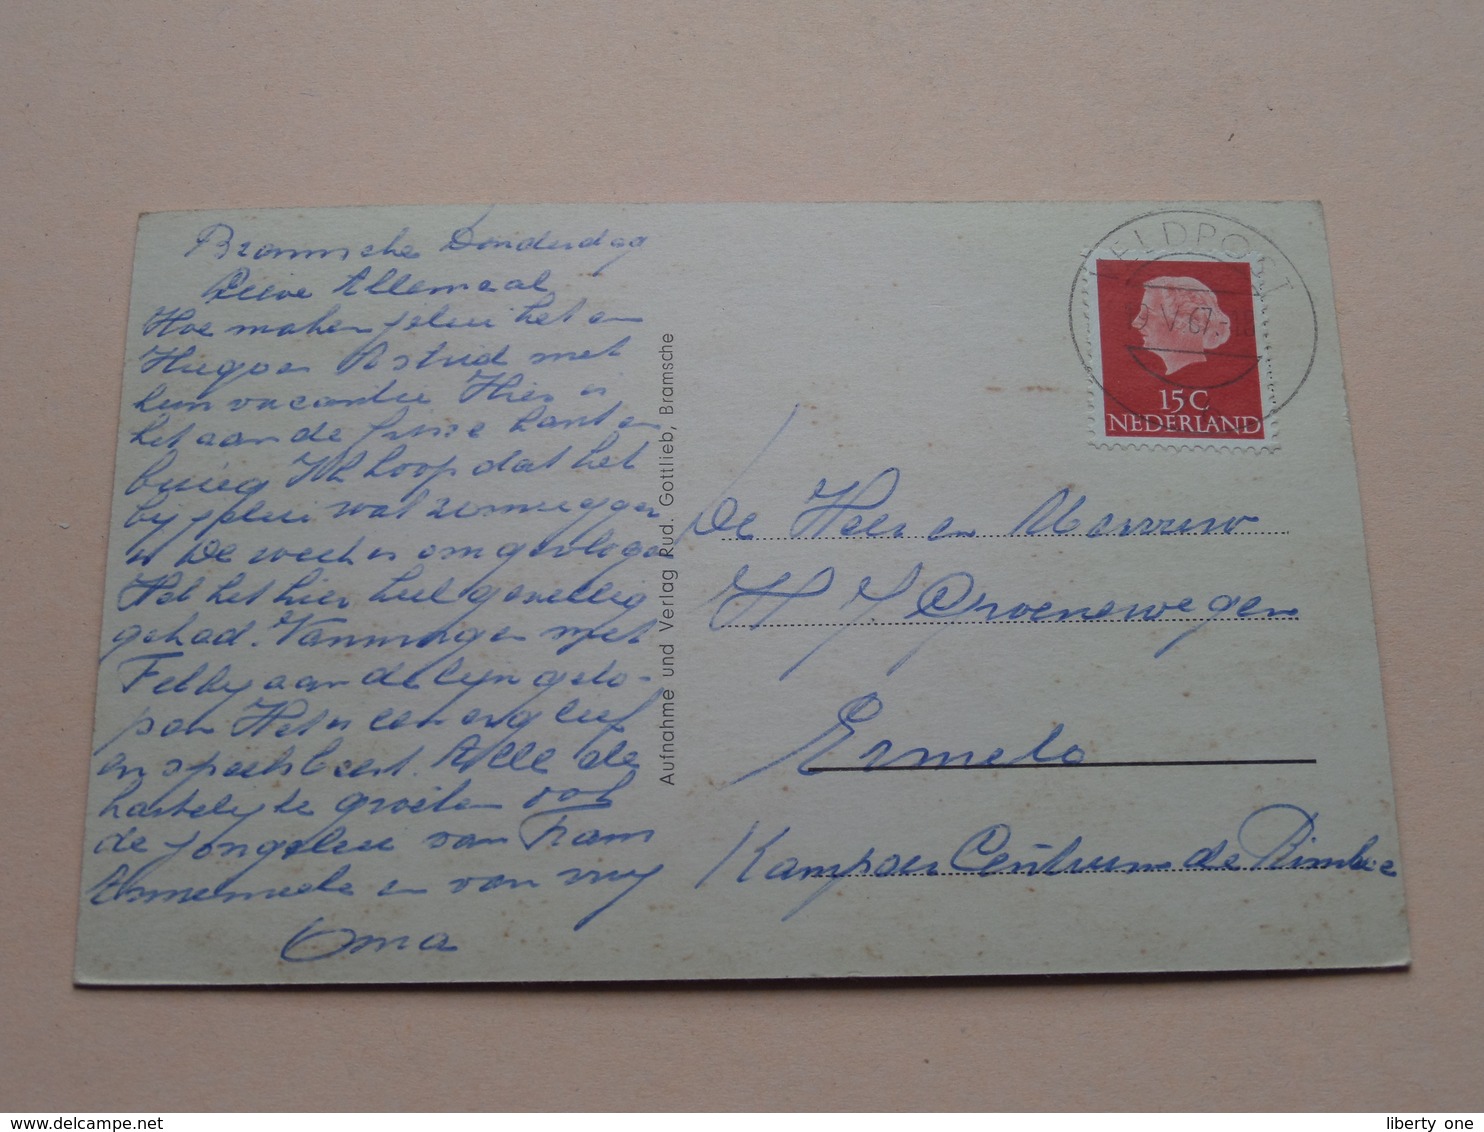 Bramsche Donderdag
Lieve Allemaal
Hoe maken jelui het en
Hugo en Astrid met
hun vacantie Hier is
het aan de frisse kant en
buiig Ik hoop dat het
bij jelui wat zonniger
is De week is omgevlogen
Heb het hier heel gezellig
gehad. Vanmorgen met
aan de lyn gelo-
pen Het is een erg lief
en speels beest. Alle de
hartelijke groeten ook
de jongelui van Fram
Annemieke en van my
Oma
Aufnahme und Verlag Rud. Gottlieb, Bramsche
VELDPOST
V.67.-18
15C
NEDERLAND
De Heer en Mevrouw
H J Groenewegen
Ermelo
Kampeer Centrum de Rimboe
www.delcampe.net
liberty one